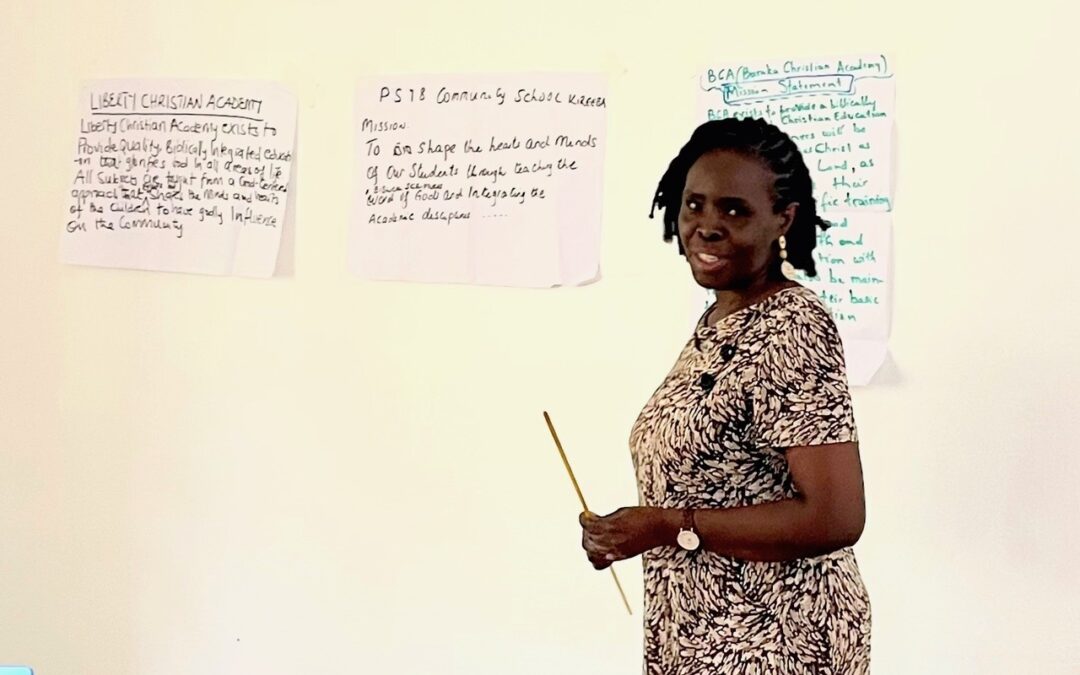 LIBERTY CHRISTIAN ACADEMY
Liberty Christian Academy exists to
Provide Quality, Biblically Integrated
that glorifies God in all areas of life
All Subjects are taught from a God-Centered
approach that the Minds and hearts
of the children to have godly Influence
on the Community
PSTB Community School
MISSION.
To Shape the hearts and Minds
Of Our Students through teaching the
Word of God and Integrating the
Academic
BCA (Baraka Christian Academy)
Mission Statement
BCA exists to provide a biblically
Christian Education
will be
Christ as
Land, as
their
training
and
th and
tion with
be main-
their basic